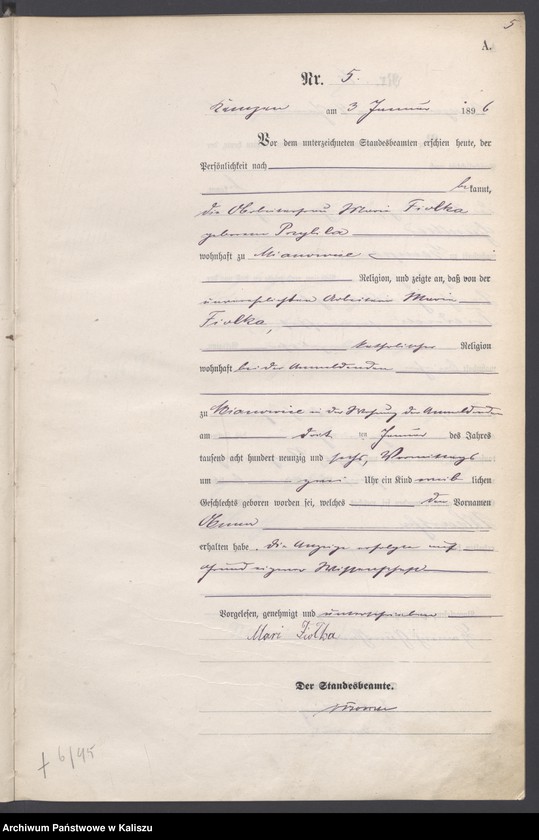 5
A.
Nr. 5.
Kempen am 3 Januar 1896
Vor dem unterzeichneten Standesbeamten erschien heute, der
Persönlichkeit nach
bekannt,
die Marie Fiolka
geborene Przybila
wohnhaft zu Mianowice
Religion, und zeigte an, daß von der
unverehelichten Arbeiterin Marie
Fiolka,
katholischer Religion
wohnhaft bei der Anmeldenden
zu Mianowice in der Wohnung der Anmeldenden
am ten Januar des Jahres
tausend acht hundert neunzig und sechs, Vormittags
um zwei Uhr ein Kind weiblichen
Geschlechts geboren worden sei, welches den Vornamen
erhalten habe. Die Anzeige erfolgte auf
Grund eigener Wissenschaft
Vorgelesen, genehmigt und unterschrieben
Mari Fiolka
Der Standesbeamte.
† 6/95
Archiwum Państwowe w Kaliszu